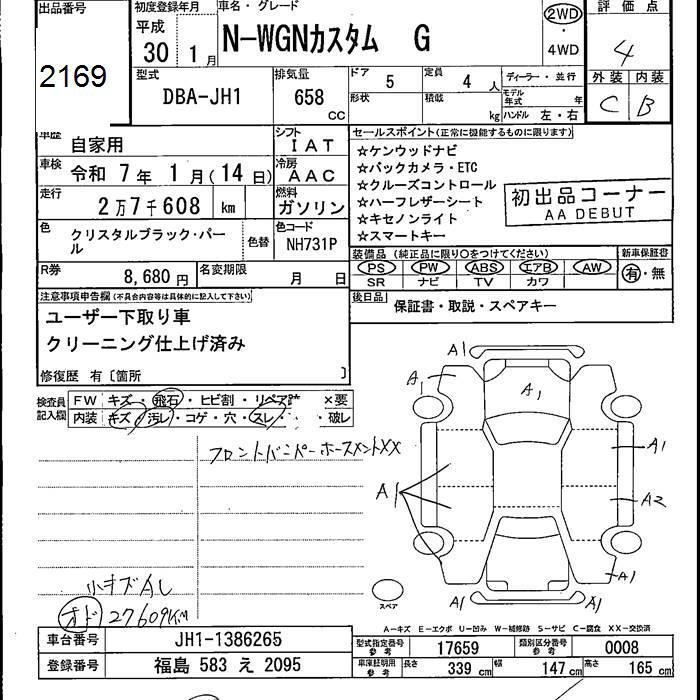 出品番号 初度登録年月 車名・グレード 評価点
2169 平成 30 1月 N-WGNカスタム G 2WD・4WD 4
型式 排気量 ドア 5 定員 4人 ディーラー・並行 外装 内装
DBA-JH1 658 CC 形状 積載 kg モデル年式 年 ハンドル 左・右 C B
車歴 自家用 シフト IAT セールスポイント(正常に機能するものに限ります)
車検 令和 7年 1月(14日) 冷房 AAC
☆ケンウッドナビ
☆バックカメラ・ETC
☆クルーズコントロール
☆ハーフレザーシート
☆キセノンライト
☆スマートキー
初出品コーナー
AA DEBUT
走行 2万7千608 km 燃料 ガソリン
色 クリスタルブラック・パール 色替 色コード NH731P
装備品(純正品に限り○をつけてください) 新車保証書
PS PW ABS エアB AW 有・無
SR ナビ TV カワ
R券 8,680円 名変期限 月 日
後日品 保証書・取説・スペアキー
注意事項申告欄(不具合内容等は具体的に記入して下さい)
ユーザー下取り車
クリーニング仕上げ済み
修復歴 有〔箇所 〕
検査員記入欄 FW キズ・飛石・ヒビ割・リペア ×要
内装 キズ・汚レ・コゲ・穴・スレ・ ・破レ
フロントバンパーホースメントXX
A1
A1
A1
A1
A1
A2
A1
A1
A1
スペア
小キズ有レ
オド 27609KM
A-キズ E-エクボ U-凹み W-補修跡 S-サビ C-腐食 XX-交換済
車台番号 JH1-1386265 型式指定番号 参考 17659 類別区分番号 参考 0008
登録番号 福島 583 え 2095 車庫証明用 参考 長さ 339 cm 幅 147 cm 高さ 165 cm